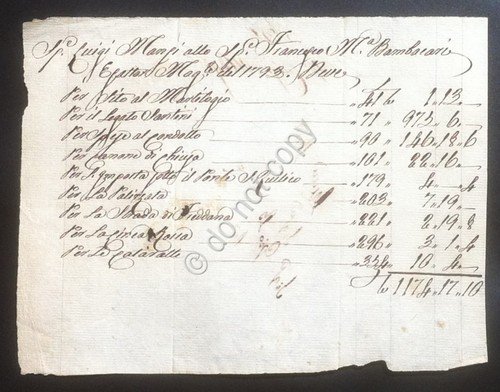 Sp.e Luigi Mansi allo Sp.e Francesco M.a Bambacari
Esattor Mag.e del 1793. Deve
Per Fito al Martilogio " 41 £ 1.. 13..
Per il Legato Santini " 71 " 975.. 6..
Per Spese al condotto " 90 " 146.. 18.. 6
Per canone di chiesa " 101 " 22.. 16..
Per l'Imposta sotto il Ponte S Quilico " 179 " 4.. -.. 4
Per La Palizzata " 203 " 7.. 19..
Per La Strada di Freddana " 221 " 2.. 19.. 8
Per La 296 " 3.. 1.. 4
Per Le Cataratte " 354 " 10.. 4..
£ 1174.. 17.. 10
© do not copy